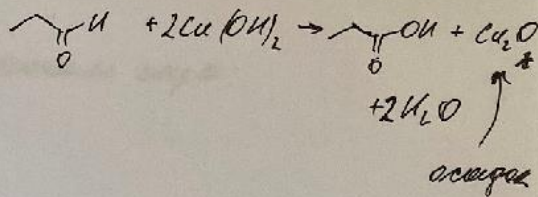 H + 2Cu(OH)₂ → OH + Cu₂O
O O
+ 2H₂O
осадок